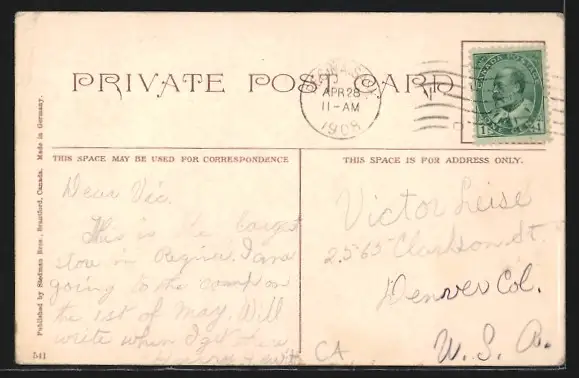 PRIVATE POST CARD
APR 28
11-AM
1908
CANADA POSTAGE
1 1
THIS SPACE MAY BE USED FOR CORRESPONDENCE
THIS SPACE IS FOR ADDRESS ONLY.
Published by Stedman Bros., Brantford, Canada. Made in Germany.
Dear Vic.
This is the largest
store in Regina. I am
going to the camp on
the 1st of May. Will
write when I get there
CA
Victor Leise
2565 Clarkson St.
Denver Col.
U. S. A.
541